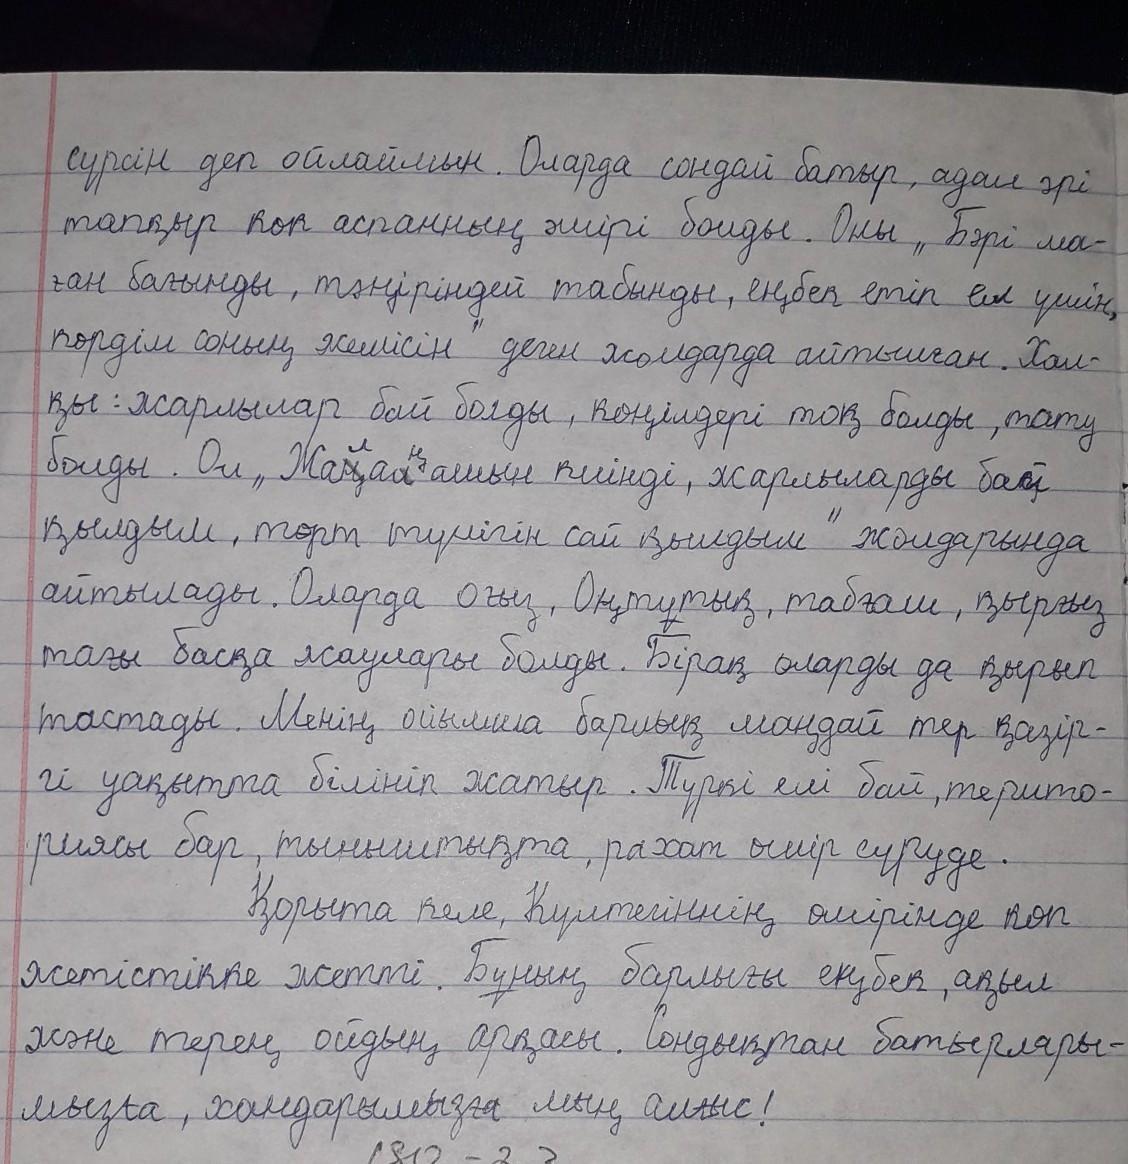 сүрсін деп ойлаймын. Оларда сондай батыр, адал әрі
тапқыр көк аспанның әмірі болды. Оны „Бәрі ма-
ған бағынды, тәңіріндей табынды, еңбек етіп ел үшін,
көрдім соның жемісін" деген жолдарда айтылған. Хал-
қы: жарлылар бай болды, көңілдері тоқ болды, тату
болды. Ол „Жалаңашын киінді, жарлыларды бай
қылдым, төрт түлігін сай қылдым" жолдарында
айтылады. Оларда оғыз, Оңтұтық, табғаш, қырғыз
тағы басқа жаулары болды. Бірақ оларды да қырып
тастады. Менің ойымша барлық маңдай тер қазір-
гі уақытта білініп жатыр. Түркі елі бай, терито-
риясы бар, тыныштықта, рахат өмір сүруде.
Қорыта келе, Күлтегіннің өмірінде көп
жетістікке жетті. Бұның барлығы еңбек, ақыл
және терең ойдың арқасы. Сондықтан батырлары-
мызға, хандарымызға мың алғыс!